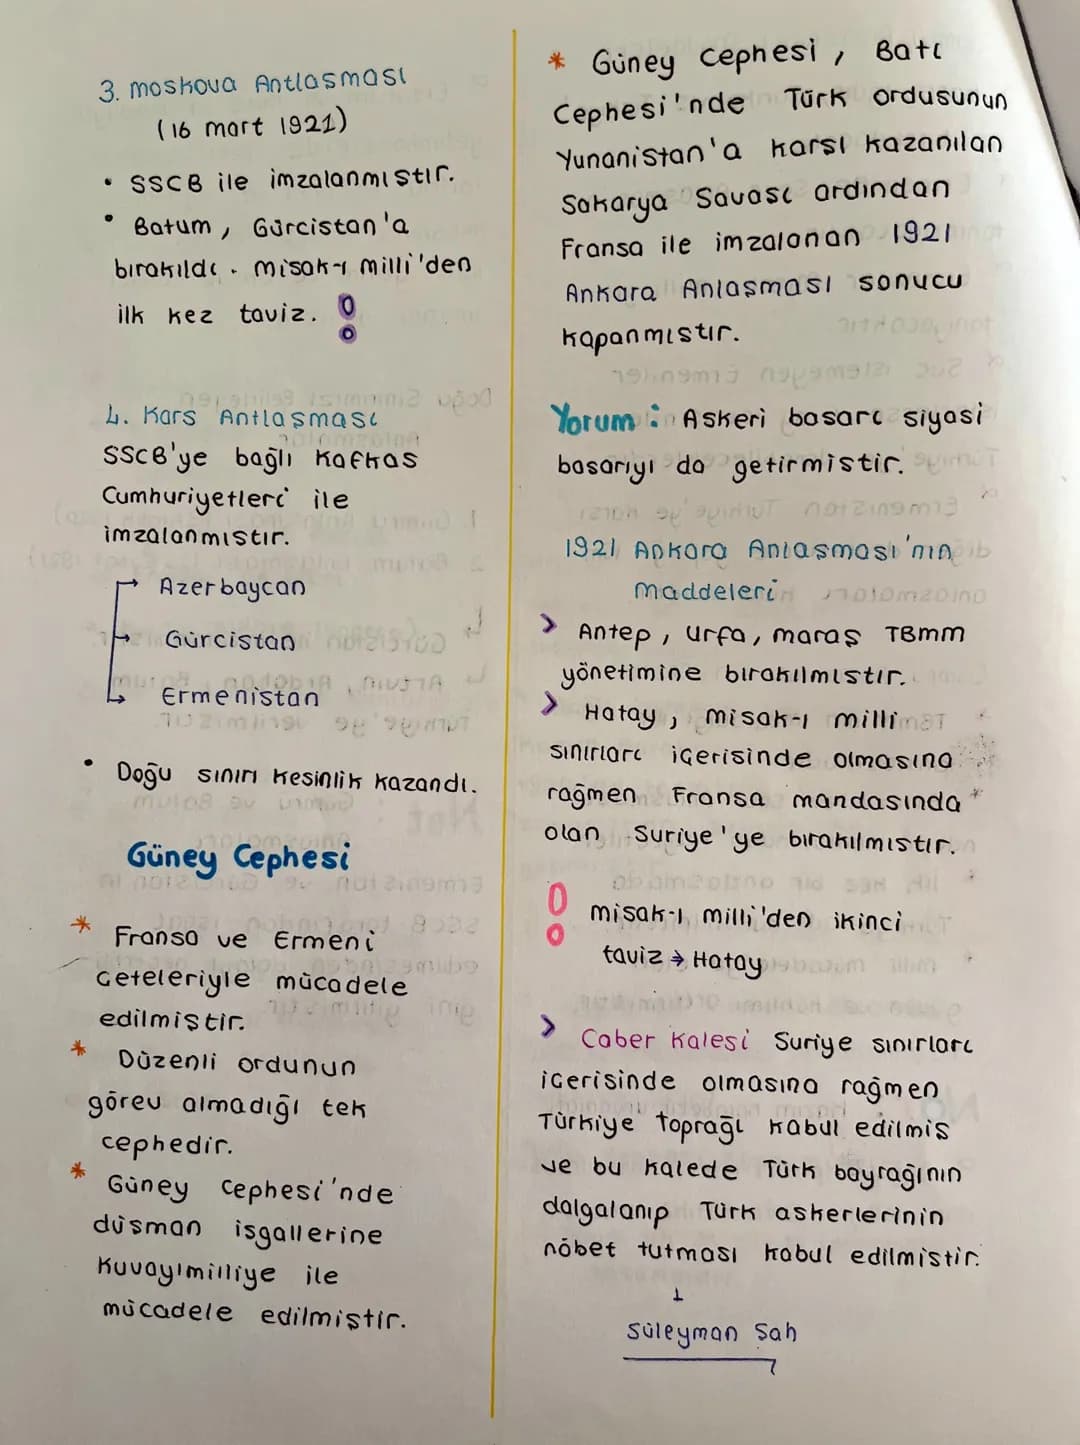 3. moskova Antlaşması
(16 mart 1921)
• SSCB ile imzalanmıştır.
• Batum, Gürcistan'a
bırakıldı. misak-ı milli'den
ilk kez taviz.
4. Kars Antlaşması
SSCB'ye bağlı Kafkas
Cumhuriyetleri ile
imzalanmıştır.
→ Azerbaycan
→ Gürcistan
→ Ermenistan
• Doğu sınırı kesinlik kazandı.
Güney Cephesi
* Fransa ve Ermeni
çeteleriyle mücadele
edilmiştir.
* Düzenli ordunun
görev almadığı tek
cephedir.
* Güney cephesi'nde
düşman işgallerine
Kuvayımilliye ile
mücadele edilmiştir.
* Güney cephesi, Batı
Cephesi'nde Türk ordusunun
Yunanistan'a karşı kazanılan
Sakarya Savaşı ardından
Fransa ile imzalanan 1921
Ankara Anlaşması sonucu
kapanmıştır.
Yorum: Askeri başarı siyasi
başarıyı da getirmiştir.
1921 Ankara Anlaşması'nın
maddeleri
> Antep, Urfa, maraş TBmm
yönetimine bırakılmıştır.
> Hatay, misak-ı milli
sınırları içerisinde olmasına
rağmen Fransa mandasında
olan Suriye'ye bırakılmıştır.
misak-ı milli'den ikinci
taviz → Hatay
> Caber Kalesi Suriye sınırları
içerisinde olmasına rağmen
Türkiye toprağı kabul edilmiş
ve bu kalede Türk bayrağının
dalgalanıp Türk askerlerinin
nöbet tutması kabul edilmiştir.
Süleyman Şah